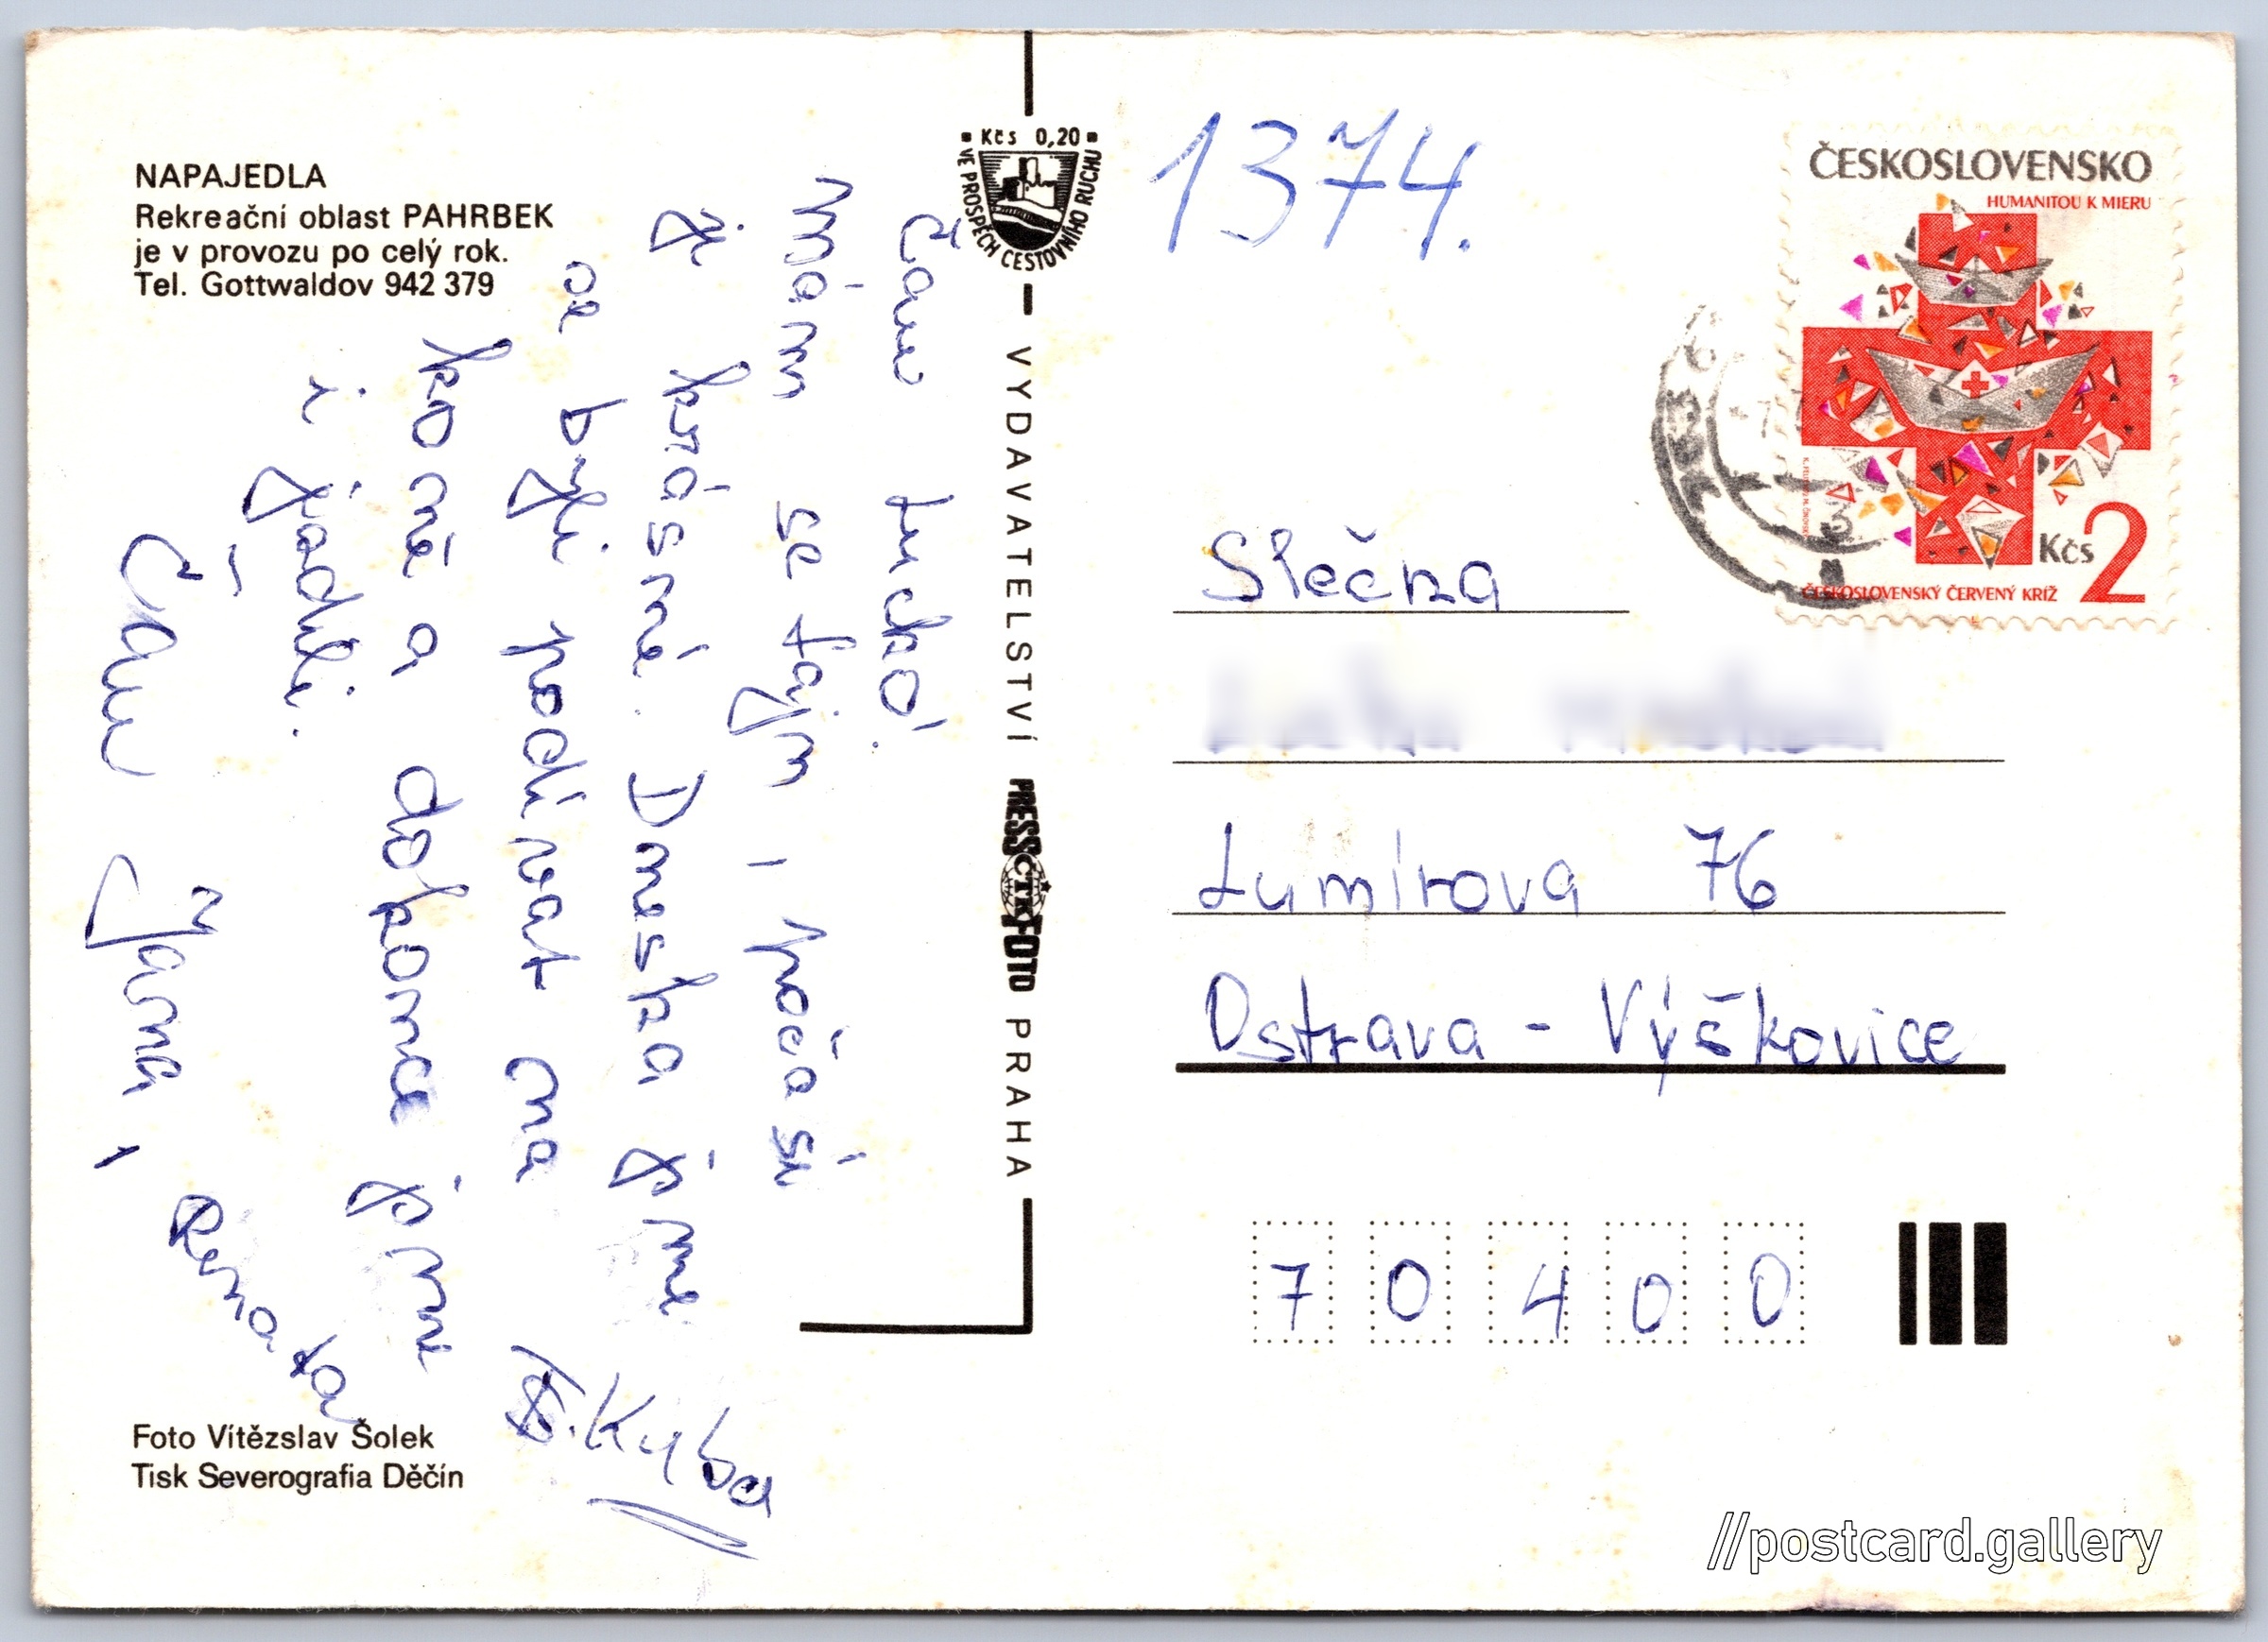 NAPAJEDLA
Rekreační oblast PAHRBEK
je v provozu po celý rok.
Tel. Gottwaldov 942 379
Čau Lucko,
mám se fajn, počasí
je krásné. Dneska jsme
se byli podívat na
koně a dokonce jsme
i jezdili.
Čau Jana,
Renata
Kyba
Foto Vítězslav Šolek
Tisk Severografia Děčín
Kčs 0,20
VE PROSPĚCH CESTOVNÍHO RUCHU
VYDAVATELSTVÍ PRESSFOTO PRAHA
ČTK
1374.
ČESKOSLOVENSKO
HUMANITOU K MIERU
Kčs 2
ČESKOSLOVENSKÝ ČERVENÝ KRÍŽ
Slečna
Lumírova 76
Ostrava - Výškovice
70400
//postcard.gallery